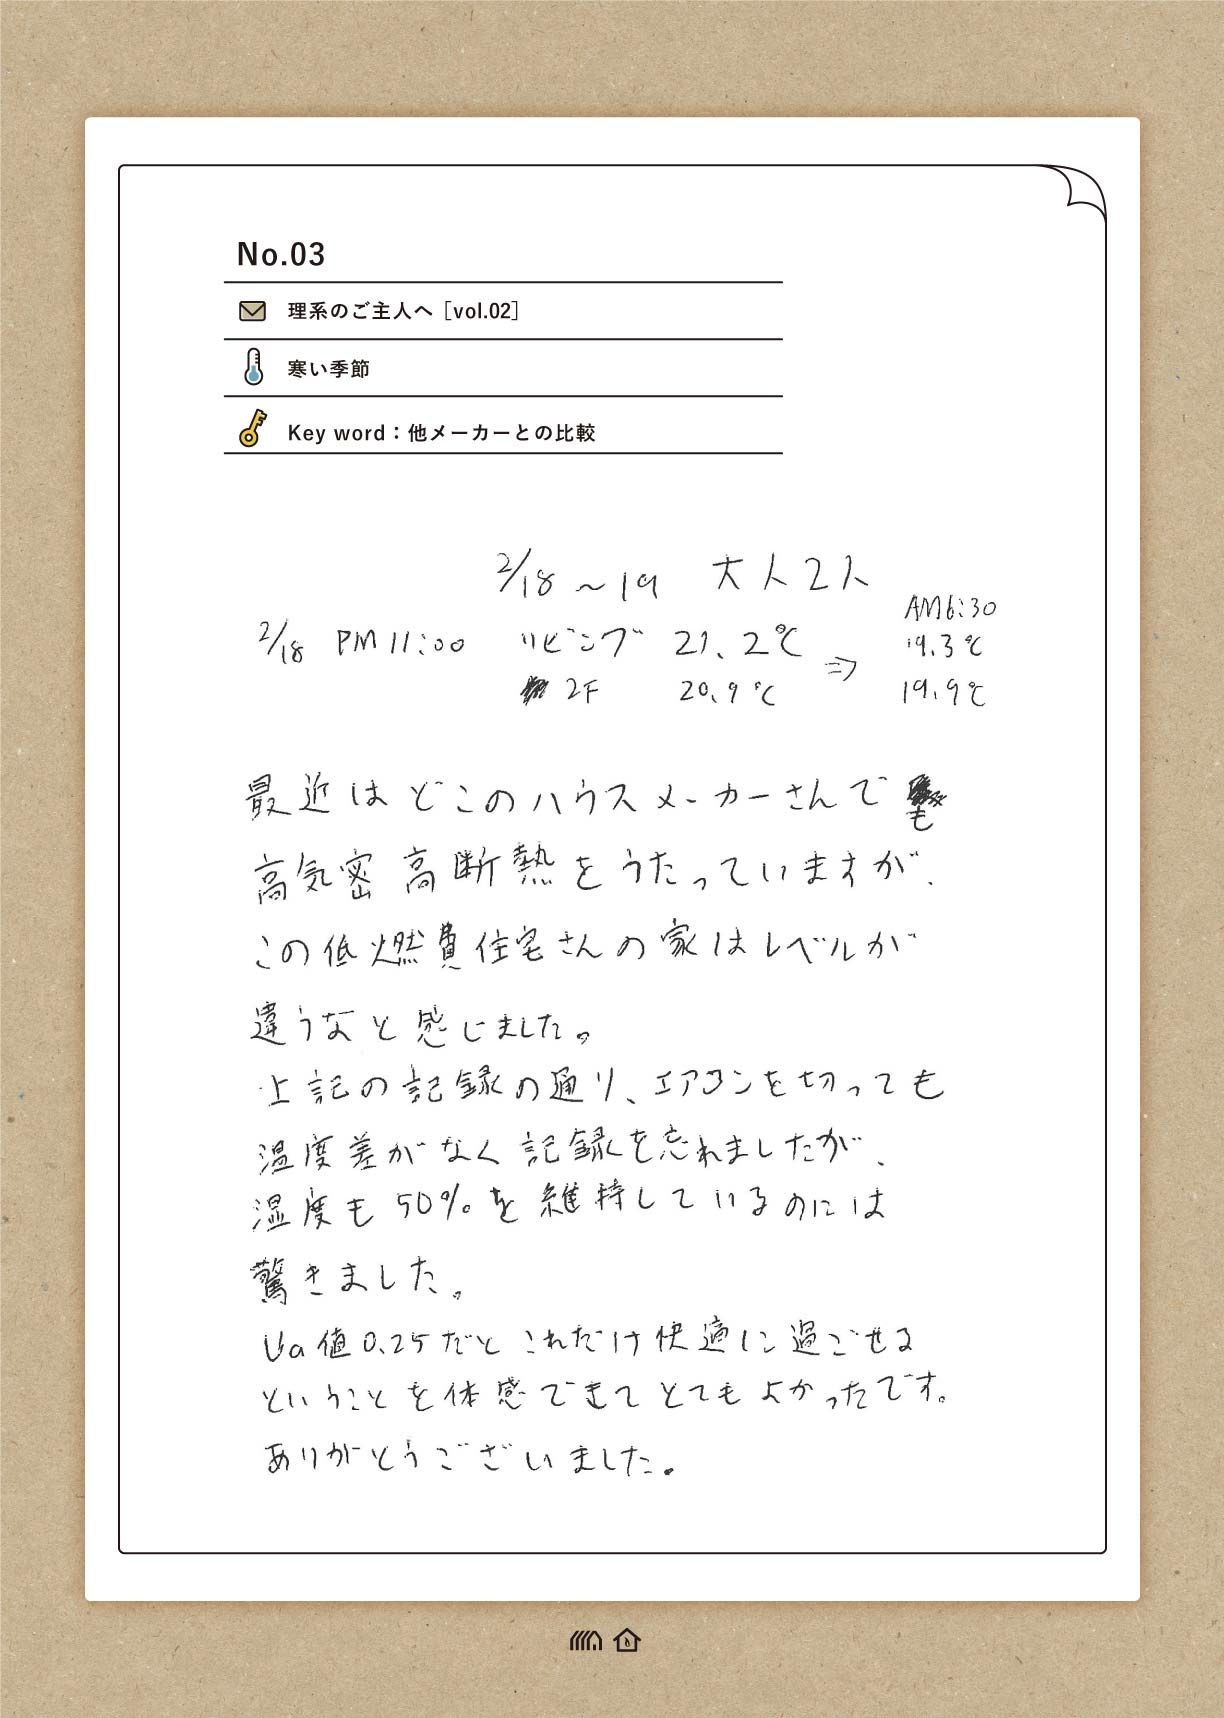 No.03
理系のご主人へ［vol.02］
寒い季節
Key word：他メーカーとの比較
2/18～19 大人2人
AM6:30
2/18 PM11:00 リビング 21.2℃ ⇒ 19.3℃
2F 20.9℃ 19.9℃
最近はどこのハウスメーカーさんでも
高気密高断熱をうたっていますが、
この低燃費住宅さんの家はレベルが
違うなと感じました。
上記の記録の通り、エアコンを切っても
温度差がなく記録を忘れましたが、
湿度も50%を維持しているのには
驚きました。
Ua値0.25だとこれだけ快適に過ごせる
ということを体感できてとてもよかったです。
ありがとうございました。